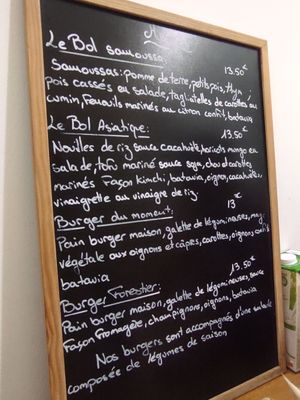 Menu
Le Bol samoussa: 13.50€
Samoussas: pomme de terre, petits pois, thym,
pois cassés en salade, tagliatelles de carottes au
cumin, Fenouils marinés au citron confit, batavia
Le Bol Asiatique: 13.50€
Nouilles de riz sauce cacahuète, haricots mungo en
salade, tofu mariné sauce soja, chou et carottes
marinés façon kimchi, batavia, oignon, cacahuètes,
vinaigrette au vinaigre de riz
Burger du moment: 13€
Pain burger maison, galette de légumineuses, mayo
végétale aux oignons et câpres, carottes, oignons confits
batavia
Burger Forestier: 13.50€
Pain burger maison, galette de légumineuses, sauce
Façon Fromagère, champignons, oignons, batavia
Nos burgers sont accompagnés d'une salade
composée de légumes de saison